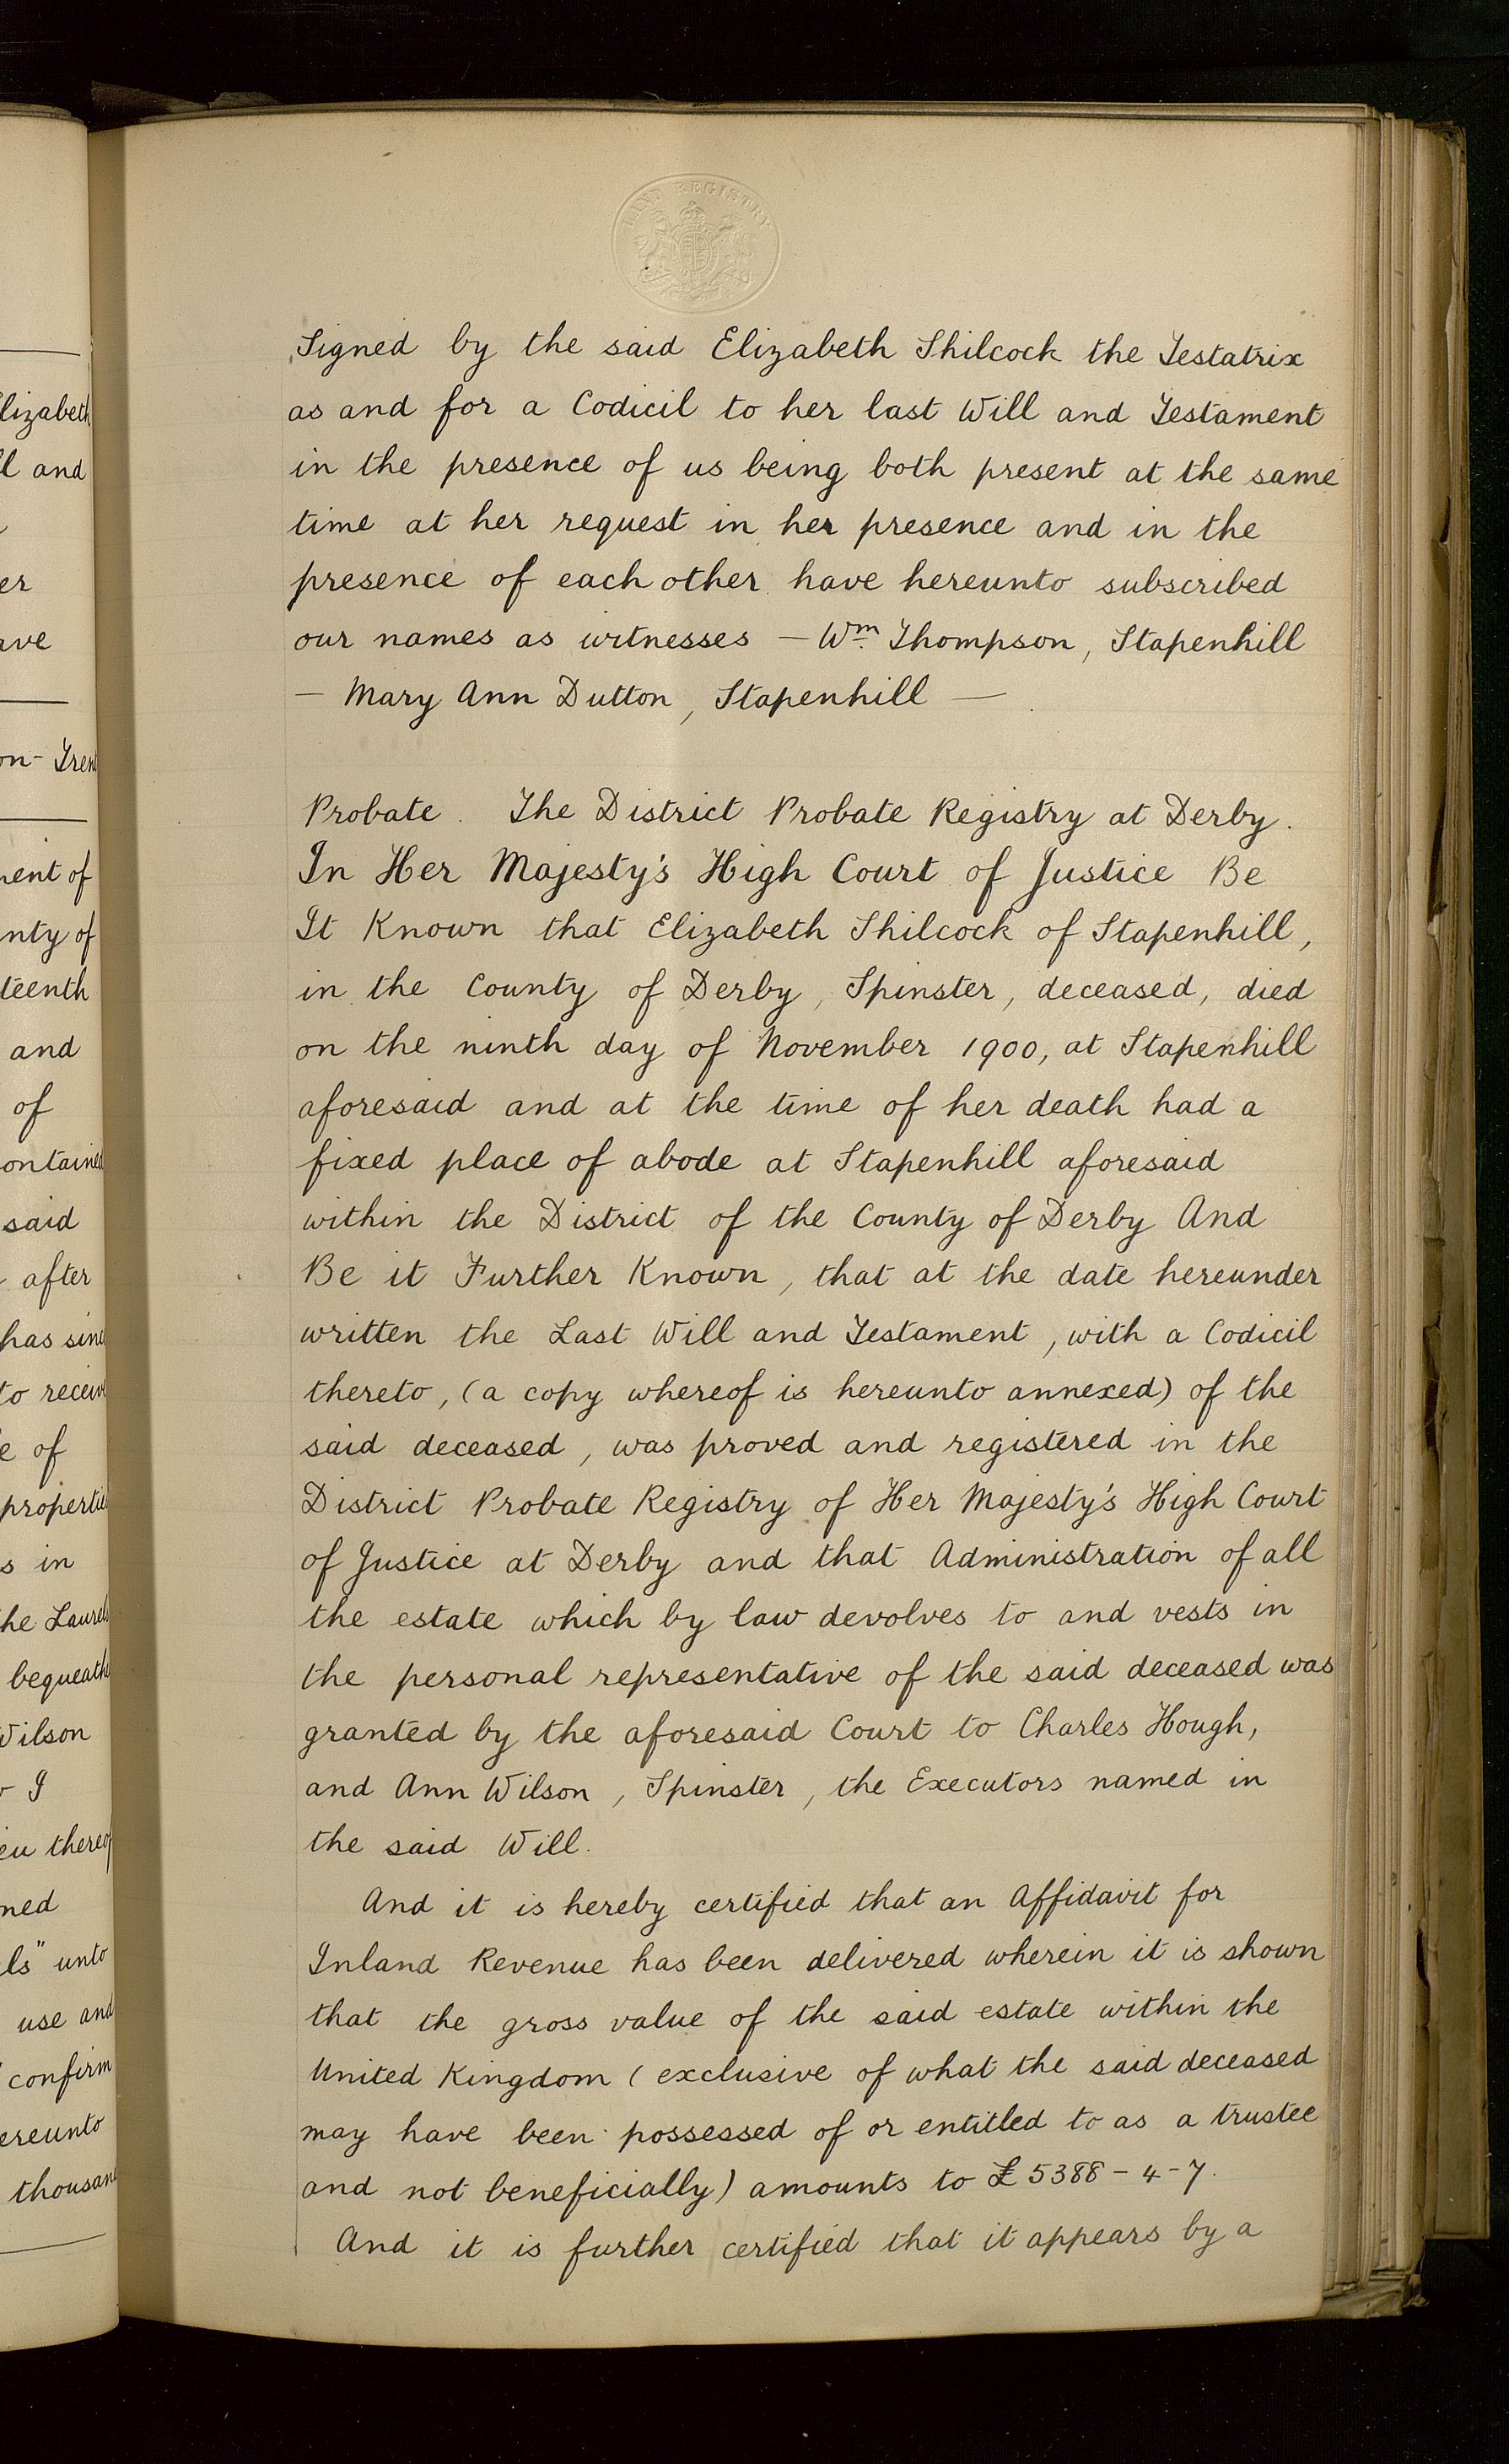 LAND REGISTRY
Signed by the said Elizabeth Shilcock the Testatrix
as and for a Codicil to her last Will and Testament
in the presence of us being both present at the same
time at her request in her presence and in the
presence of each other have hereunto subscribed
our names as witnesses — Wm Thompson, Stapenhill
— Mary Ann Dutton, Stapenhill —
Probate. The District Probate Registry at Derby.
In Her Majesty's High Court of Justice Be
It Known that Elizabeth Shilcock of Stapenhill,
in the County of Derby, Spinster, deceased, died
on the ninth day of November 1900, at Stapenhill
aforesaid and at the time of her death had a
fixed place of abode at Stapenhill aforesaid
within the District of the County of Derby And
Be it Further Known, that at the date hereunder
written the Last Will and Testament, with a Codicil
thereto, (a copy whereof is hereunto annexed) of the
said deceased, was proved and registered in the
District Probate Registry of Her Majesty's High Court
of Justice at Derby and that Administration of all
the estate which by law devolves to and vests in
the personal representative of the said deceased was
granted by the aforesaid Court to Charles Hough,
and Ann Wilson, Spinster, the Executors named in
the said Will.
And it is hereby certified that an Affidavit for
Inland Revenue has been delivered wherein it is shown
that the gross value of the said estate within the
United Kingdom (exclusive of what the said deceased
may have been possessed of or entitled to as a trustee
and not beneficially) amounts to £5388-4-7.
And it is further certified that it appears by a